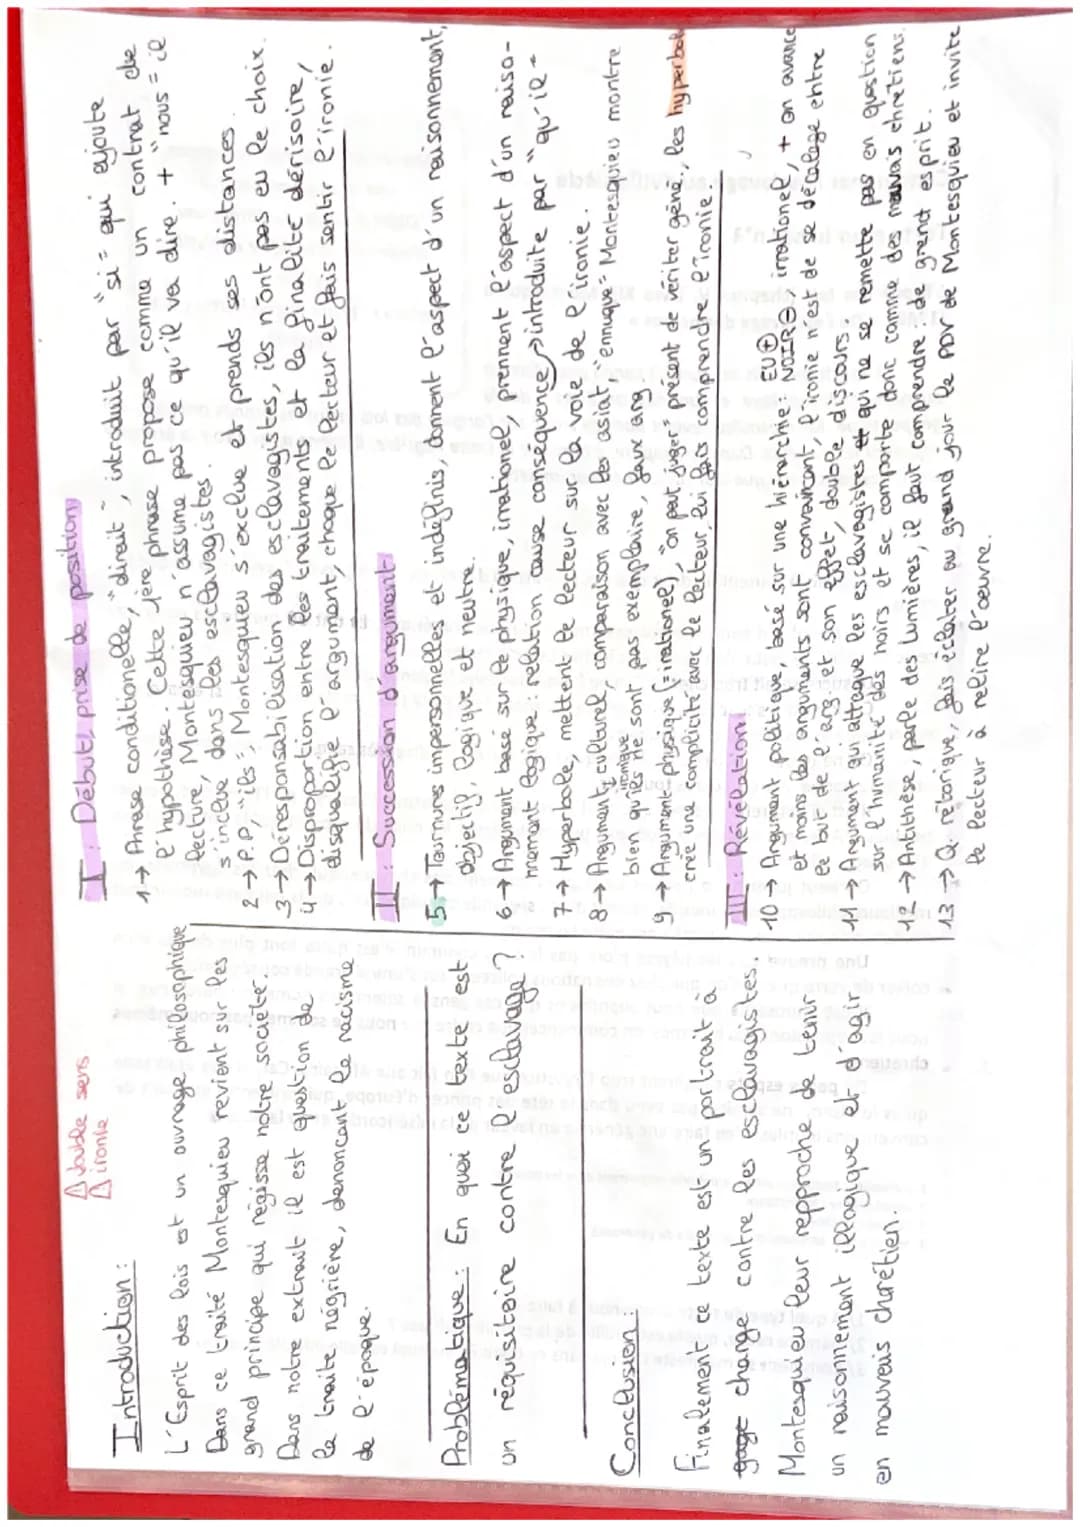 ⚠ double sens
⚠ ironie
Introduction :
L'Esprit des lois est un ouvrage philosophique
Dans ce traité Montesquieu revient sur les
grand principe qui régisse notre société.
Dans notre extrait il est question de
la traite négrière, dénoncant le racisme
de l'époque.
Problématique : En quoi ce texte est
un réquisitoire contre l'esclavage ?
Conclusion :
Finalement ce texte est un portrait à
change contre les esclavagistes.
Montesquieu leur repproche de tenir
un raisonement illogique et d'agir
en mauvais chrétien.
I : Début, prise de position
1→ Phrase conditionelle, "dirait", introduit par "si" = qui ajoute
l'hypthèse. Cette 1ère phrase propose comme un contrat de
lecture, Montesquieu n'assume pas ce qu'il va dire. + "nous" = il
s'inclue dans les esclavagistes.
2→ P.P, "ils" = Montesquieu s'exclue et prends ses distances.
3→ Déresponsabilisation des esclavagistes, ils n'ont pas eu le choix.
4→ Disproportion entre les traitements et la finalité dérisoire,
disqalifie l'argument, choque le lecteur et fais sentir l'ironie.
II : Succession d'argument
5→ Tournures impersonelles et indéfinis, donnent l'aspect d'un raisonnement,
objectif, logique et neutre.
6→ Argument basé sur le physique, irrationel, prennent l'aspect d'un raiso-
nemant logique : relation cause conséquence → introduite par "qu'il"
7→ Hyperbole, mettent le lecteur sur la voie de l'ironie.
8→ Argument culturel, comparaison avec les asiat, "ennuque" = Montesquieu montre
ironique
bien qu'ils ne sont pas exemplaire, faux arg
9→ Argument physique (= irationel), "on peut juger" présent de vériter géné, les hyperbole
crée une complicité avec le lecteur, lui fais comprendre l'ironie.
III : Révélation
10→ Argument politique basé sur une hiérarchie : EU⊕ NOIR⊖ irrationel, + on avance
et moins les arguments sont convaincant, l'ironie n'est de se décalage entre
le but de l'arg et son effet, double discours.
11→ Argument qui attaque les esclavagistes et qui ne se remette pas en question
sur l'humanité des noirs et se comporte donc comme des mauvais chrétiens.
12→ Anthithèse, parle des Lumières, il faut comprendre de grand esprit.
13→ Q. rétorique, fais éclater au grand jour le PDV de Montesquieu et invite
le lecteur à relire l'œuvre.